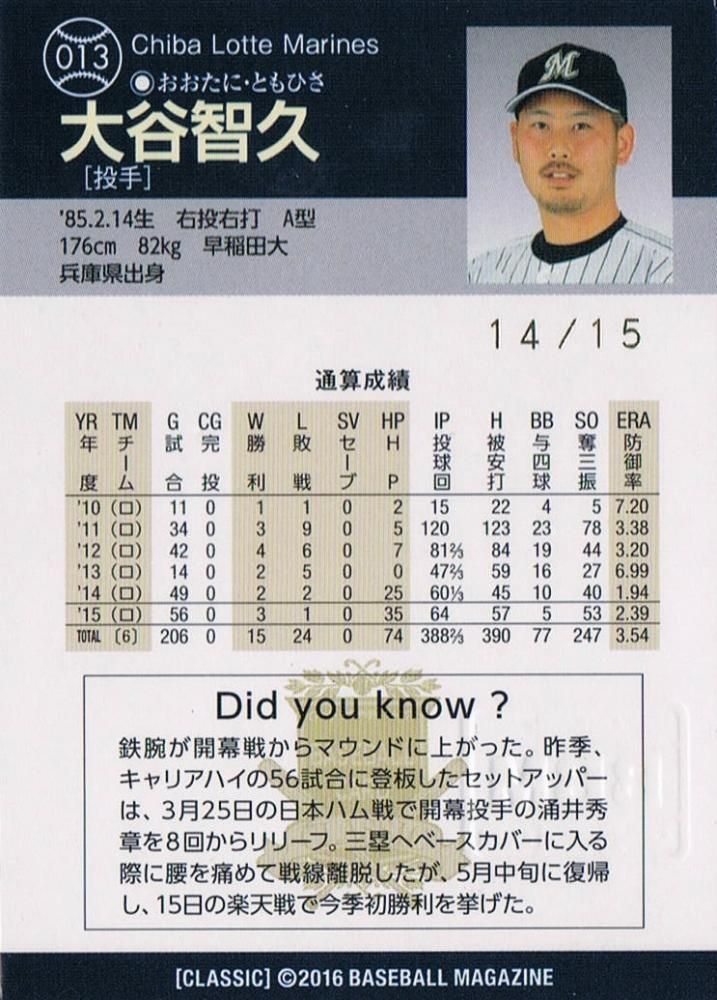 013
Chiba Lotte Marines
おおたに・ともひさ
大谷智久
[投手]
'85.2.14生 右投右打 A型
176cm 82kg 早稲田大
兵庫県出身
14/15
通算成績
YR TM G CG W L SV HP IP H BB SO ERA
年度 チーム 試合 完投 勝利 敗戦 セーブ HP 投球回 被安打 与四球 奪三振 防御率
'10 (ロ) 11 0 1 1 0 2 15 22 4 5 7.20
'11 (ロ) 34 0 3 9 0 5 120 123 23 78 3.38
'12 (ロ) 42 0 4 6 0 7 81⅔ 84 19 44 3.20
'13 (ロ) 14 0 2 5 0 0 47⅔ 59 16 27 6.99
'14 (ロ) 49 0 2 2 0 25 60⅓ 45 10 40 1.94
'15 (ロ) 56 0 3 1 0 35 64 57 5 53 2.39
TOTAL (6) 206 0 15 24 0 74 388⅔ 390 77 247 3.54
Did you know ?
鉄腕が開幕戦からマウンドに上がった。昨季、
キャリアハイの56試合に登板したセットアッパー
は、3月25日の日本ハム戦で開幕投手の涌井秀
章を8回からリリーフ。三塁へベースカバーに入る
際に腰を痛めて戦線離脱したが、5月中旬に復帰
し、15日の楽天戦で今季初勝利を挙げた。
[CLASSIC] ©2016 BASEBALL MAGAZINE